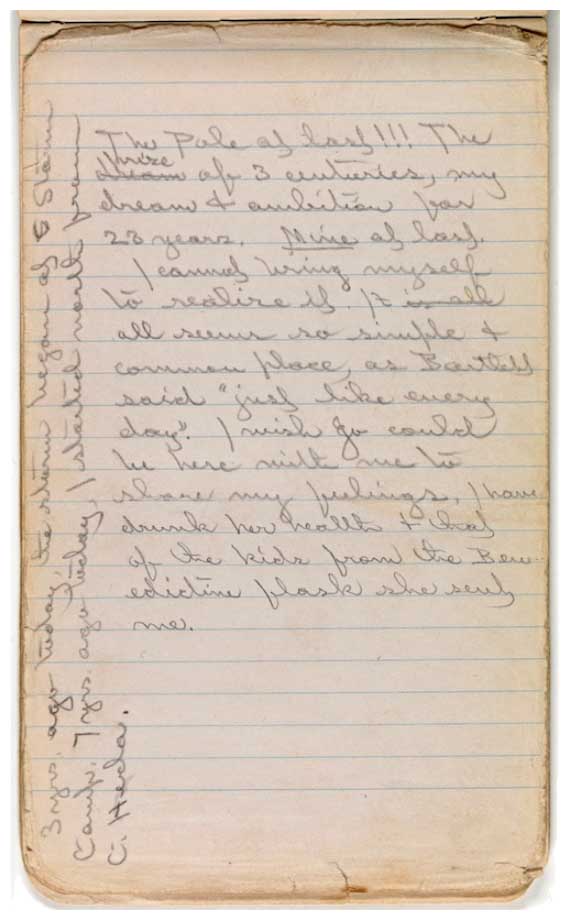 The Pole at last!!! The
prize
dream of 3 centuries, my
dream & ambition for
23 years. Mine at last.
I cannot bring myself
to realize it. It is all
all seems so simple &
common place, as Bartlett
said "just like every
day". I wish Jo could
be here with me to
share my feelings, I have
drunk her health & that
of the kids from the Ben-
edictine flask she sent
me.
3 yrs. ago today, the storm began at 6 Storm
Camp, 7 yrs. ago today, I started north from
C. Hecla.